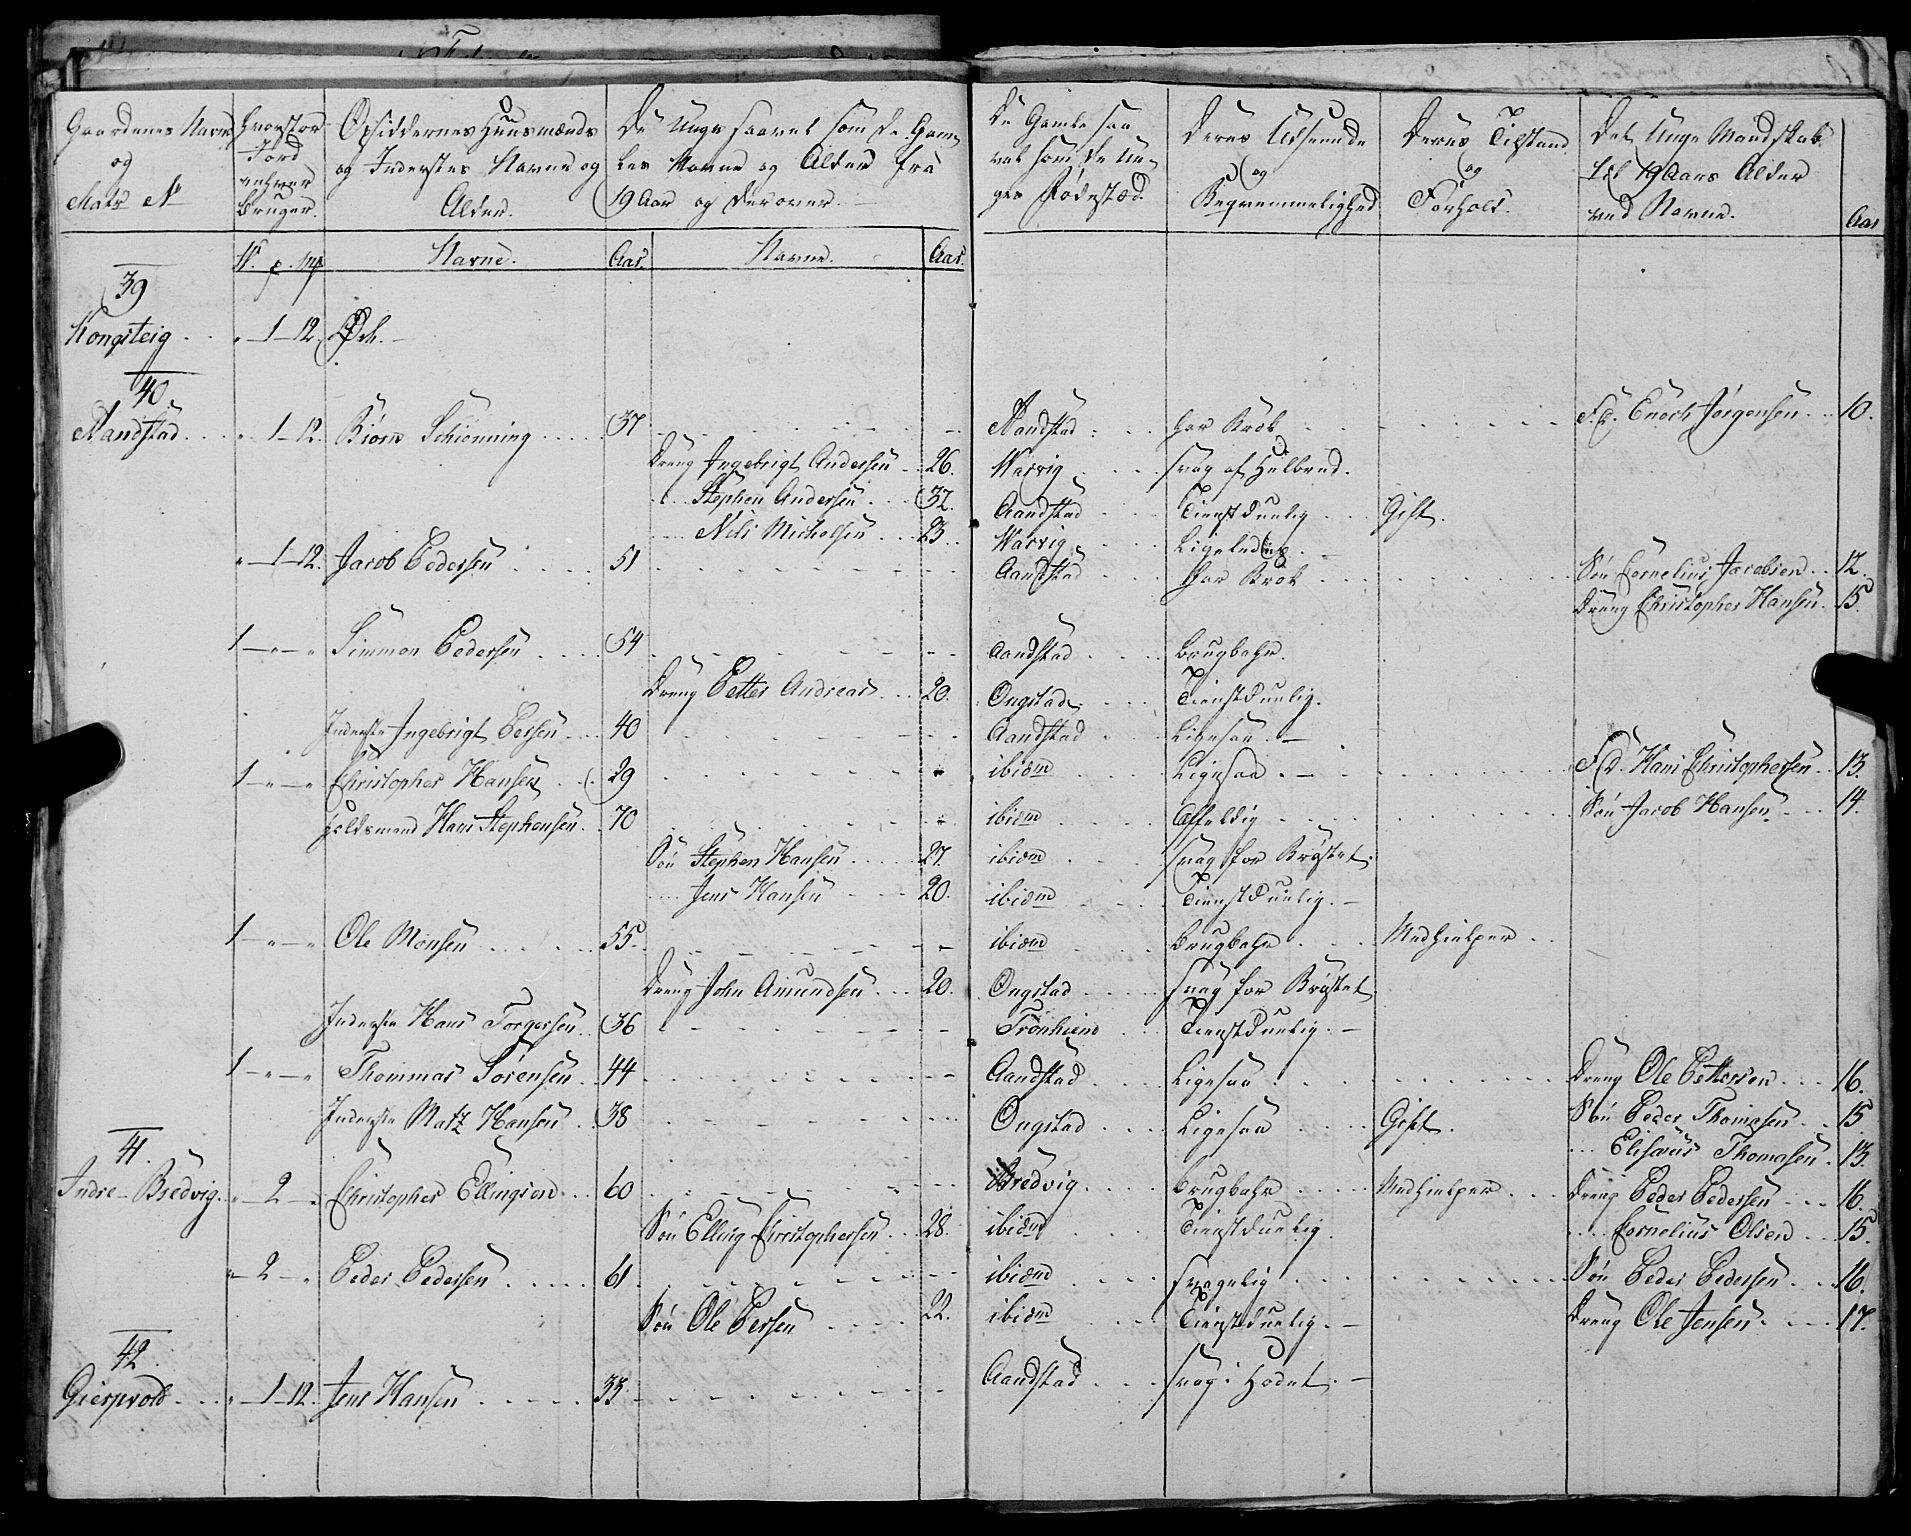 Gaardenes Navn og Matr N
Hvorstor Jord enhver Bruger.
Opsiddernes Huusmænds og Inderstes Navne og Alder.
De Unge saavel som de Gamles Navne og Alder fra 19 Aar og derover.
De Gamle saavel som de Unges Fødested.
Deres Udseende og Beqvemmelighed
Deres Tilstand og Forhold.
Det Unge Mandskab til 19 Aars Alder ved Navne.
Aar
Navne. Aar. Navne. Aar.
39
Kongsteig . . „ 1 12
40
Aandstad . . . „ 1 12. Biørn Schiønning . . . . 37 Aandstad . . har Brok F.d. Enoch Jørgensen . . 10.
Dreng Ingebrigt Andersen . . 26. Warvig . . . svag af Helbred.
. . . Stephen Andersen . . . 32. Aandstad . . Tienstduelig . . Gift.
. . . Nils Michelsen . . . 23. Warvig . . . Ligeledes. –
„ 1 12. Jacob Pedersen . . . . 51 Aandstad . . har Brok Søn Cornelius Jacobsen . . 12.
Dreng Christopher Hansen . 15.
1 „ „ Simmon Pedersen . . . 54 Aandstad . . . Brugbahr.
Dreng Petter Andreas . . . 20. Ongstad . . Tienstduelig.
Inderste Ingebrigt Persen . . . 40 Aandstad . . Ligesaa. –
1 „ „ Christopher Hansen . . 29 ibidm Ligesaa. – F.d. Hans Christophersen . . 13.
Hans Stephensen . . 70 ibidm Affeldig Søn Jacob Hansen . . . 14.
Søn Stephen Hansen . . . . 27. ibidm . . svag for Brøstet.
. . . Jens Hansen . . . 20. ibidm . . Tienstduelig. –
1 „ „ Ole Monsen . . . . 55. ibidm . . . Brugbahr . . . Medhielper . .
Dreng John Amundsen . . . 20. Ongstad . . . svag for Brøstet.
Inderste Hans Torgersen . . 36 Tronhiem . . Tienstduelig. –
1 „ „ Thommas Sørensen . . 44 Aandstad . . . Ligesaa Dreng Ole Pettersen . . . 16.
Inderste Matz Hansen . . 38 Ongstad . . . Ligesaa . . . Gift. Søn Peder Thomesen . . 15
. . . Elisæus Thomasen . 13.
41.
Indre Bredvig . „ 2 „ Christopher Ellingsen . . 60 Bredvig . . . Brugbahr . . . Medhielper . . . Dreng Peder Pedersen . . . 16.
Søn Elling Christophersen . . . 28. ibidm . . Tienstduelig. . . . Cornelius Olsen . . . 15.
„ 2 „ Peder Pedersen . . . . . 61 ibidm . . . svagelig Søn Peder Pedersen . . . 16.
Søn Ole Persen . . . . . 22. ibidm . . Tienstduelig. – Dreng Ole Jensen . . . . 17.
42.
Giersvold . . . „ 1 12. Jens Hansen . . . . . 33 Aandstad . . . svag i Hodet. –